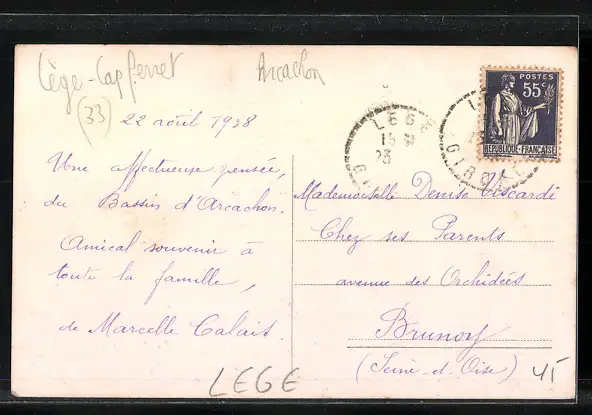 Lège-Cap Ferret
Arcachon
(33)
22 août 1938
Une affectueuse pensée,
du Bassin d'Arcachon.
Amical souvenir à
toute la famille,
de Marcelle Calais.
LEGE
POSTES
55c
REPUBLIQUE FRANÇAISE
LEGE
15
23
GIRONDE
Mademoiselle Denise Viscardi
Chez ses Parents
avenue des Orchidées
Brunoy
(Seine-et-Oise)
45